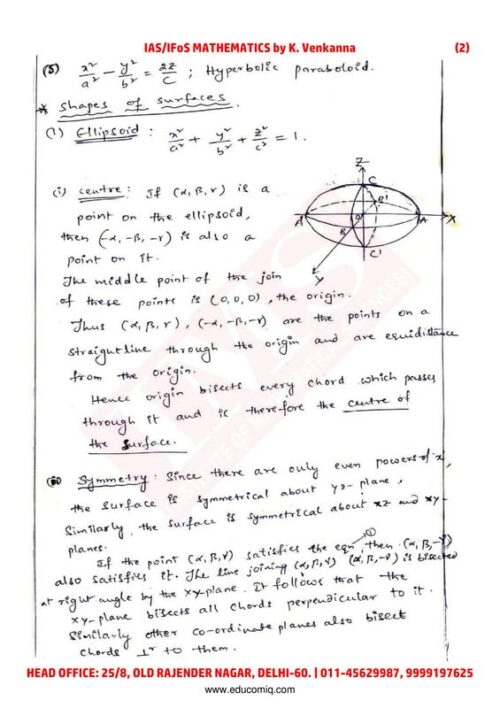 IAS/IFoS MATHEMATICS by K. Venkanna (2)
(5) x²/a² - y²/b² = 2z/c ; Hyperbolic paraboloid.
* Shapes of surfaces.
(1) Ellipsoid : x²/a² + y²/b² + z²/c² = 1.
(i) centre : If (α, β, γ) is a
point on the ellipsoid,
then (-α, -β, -γ) is also a
point on it.
Z
C
B'
A'
O
A
X
B
C'
Y
The middle point of the join
of these points is (0,0,0), the origin.
Thus (α, β, γ), (-α, -β, -γ) are the points on a
straight line through the origin and are equidistance
from the origin.
Hence origin bisects every chord which passes
through it and is therefore the centre of
the surface.
Symmetry : Since there are only even powers of x,
the surface is symmetrical about yz-plane,
Similarly, the surface is symmetrical about xz and xy-
planes.
If the point (α, β, γ) satisfies the eqn ①, then (α, β, -γ)
also satisfies it. The line joining (α, β, γ) (α, β, -γ) is bisected
at right angle by the xy-plane. It follows that the
xy-plane bisects all chords perpendicular to it.
Similarly other co-ordinate planes also bisect
chords ⊥r to them.
HEAD OFFICE: 25/8, OLD RAJENDER NAGAR, DELHI-60. | 011-45629987, 9999197625
www.educomiq.com